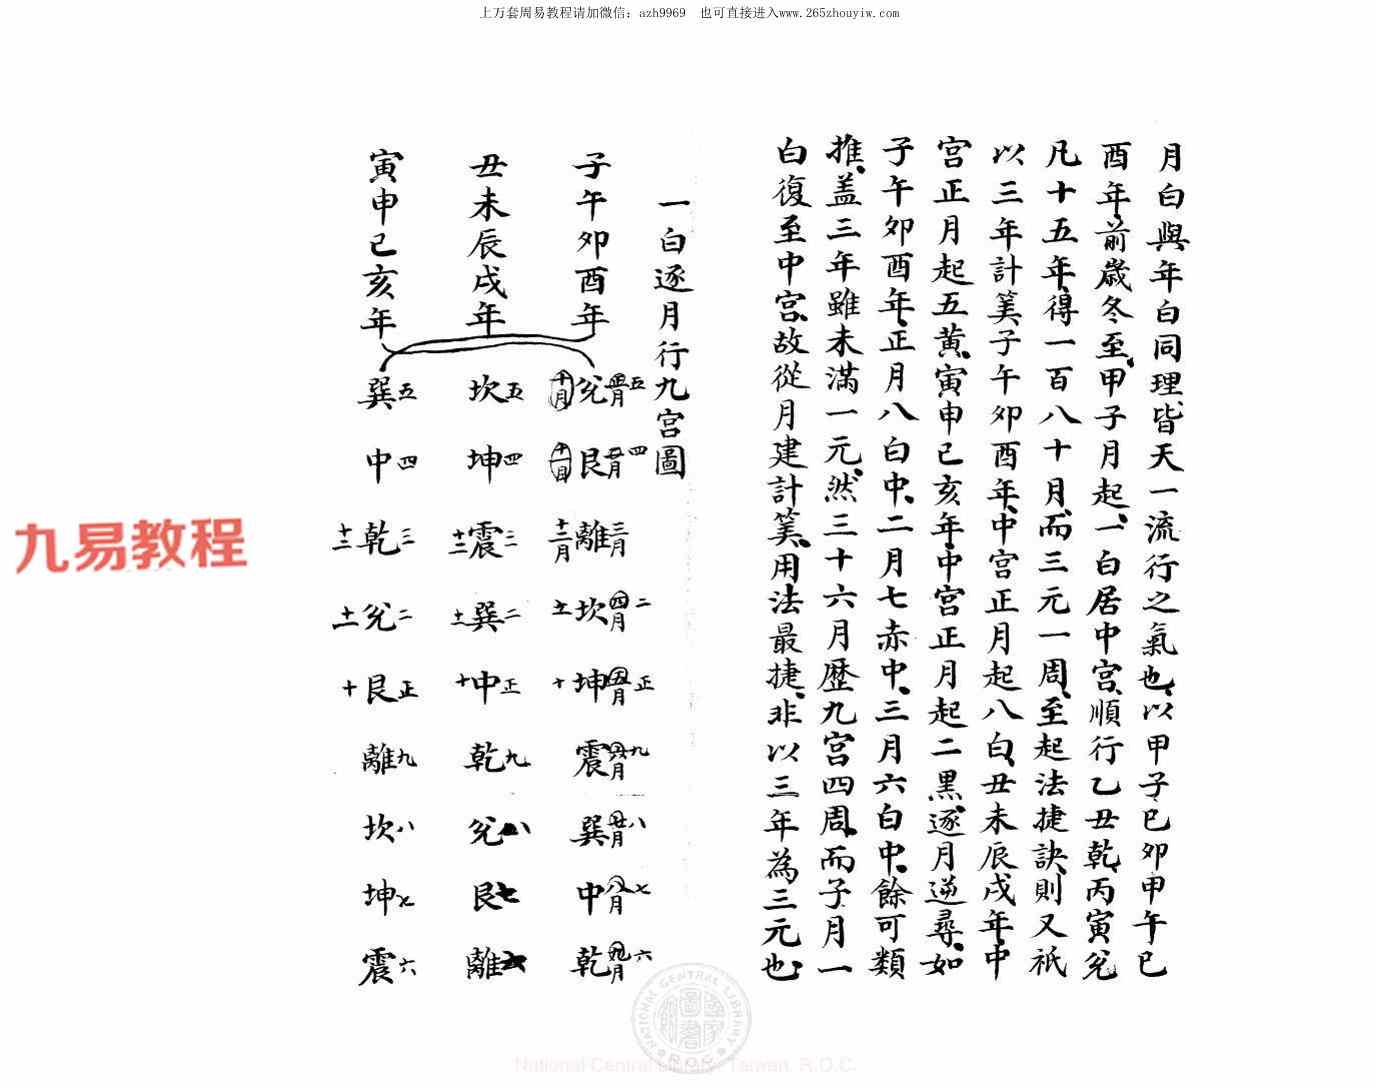 上万套周易教程请加微信：azh9969　也可直接进入www.265zhouyiw.com
月白與年白同理皆天一流行之氣也以甲子已卯甲午已
酉年前歲冬至甲子月起一白居中宮順行乙丑乾丙寅兊
凡十五年得一百八十月而三元一周至起法捷訣則又祇
以三年計筭子午卯酉年中宮正月起八白丑未辰戌年中
宮正月起五黃寅申已亥年中宮正月起二黑逐月逆尋如
子午卯酉年正月八白中二月七赤中三月六白中餘可類
推盖三年雖未滿一元然三十六月歷九宮四周而子月一
白復至中宮故從月建計筭用法最捷非以三年為三元也
一白逐月行九宮圖
子午卯酉年
兊 正月 五 十月
艮 二月 四 十一月
離 三月 十二月
坎 四月 二
坤 五月 正 十
震 六月 九
巽 七月 八
中 八月 七
乾 九月 六
丑未辰戌年
坎 五
坤 四
震 三 十二
巽 二 十一
中 正 十
乾 九
兊 八
艮 七
離 六
寅申已亥年
巽 五
中 四
乾 三 十二
兊 二 十一
艮 正 十
離 九
坎 八
坤 七
震 六
九易教程
NATIONAL CENTRAL LIBRARY
R.O.C.
National Central Library, Taiwan, R.O.C.